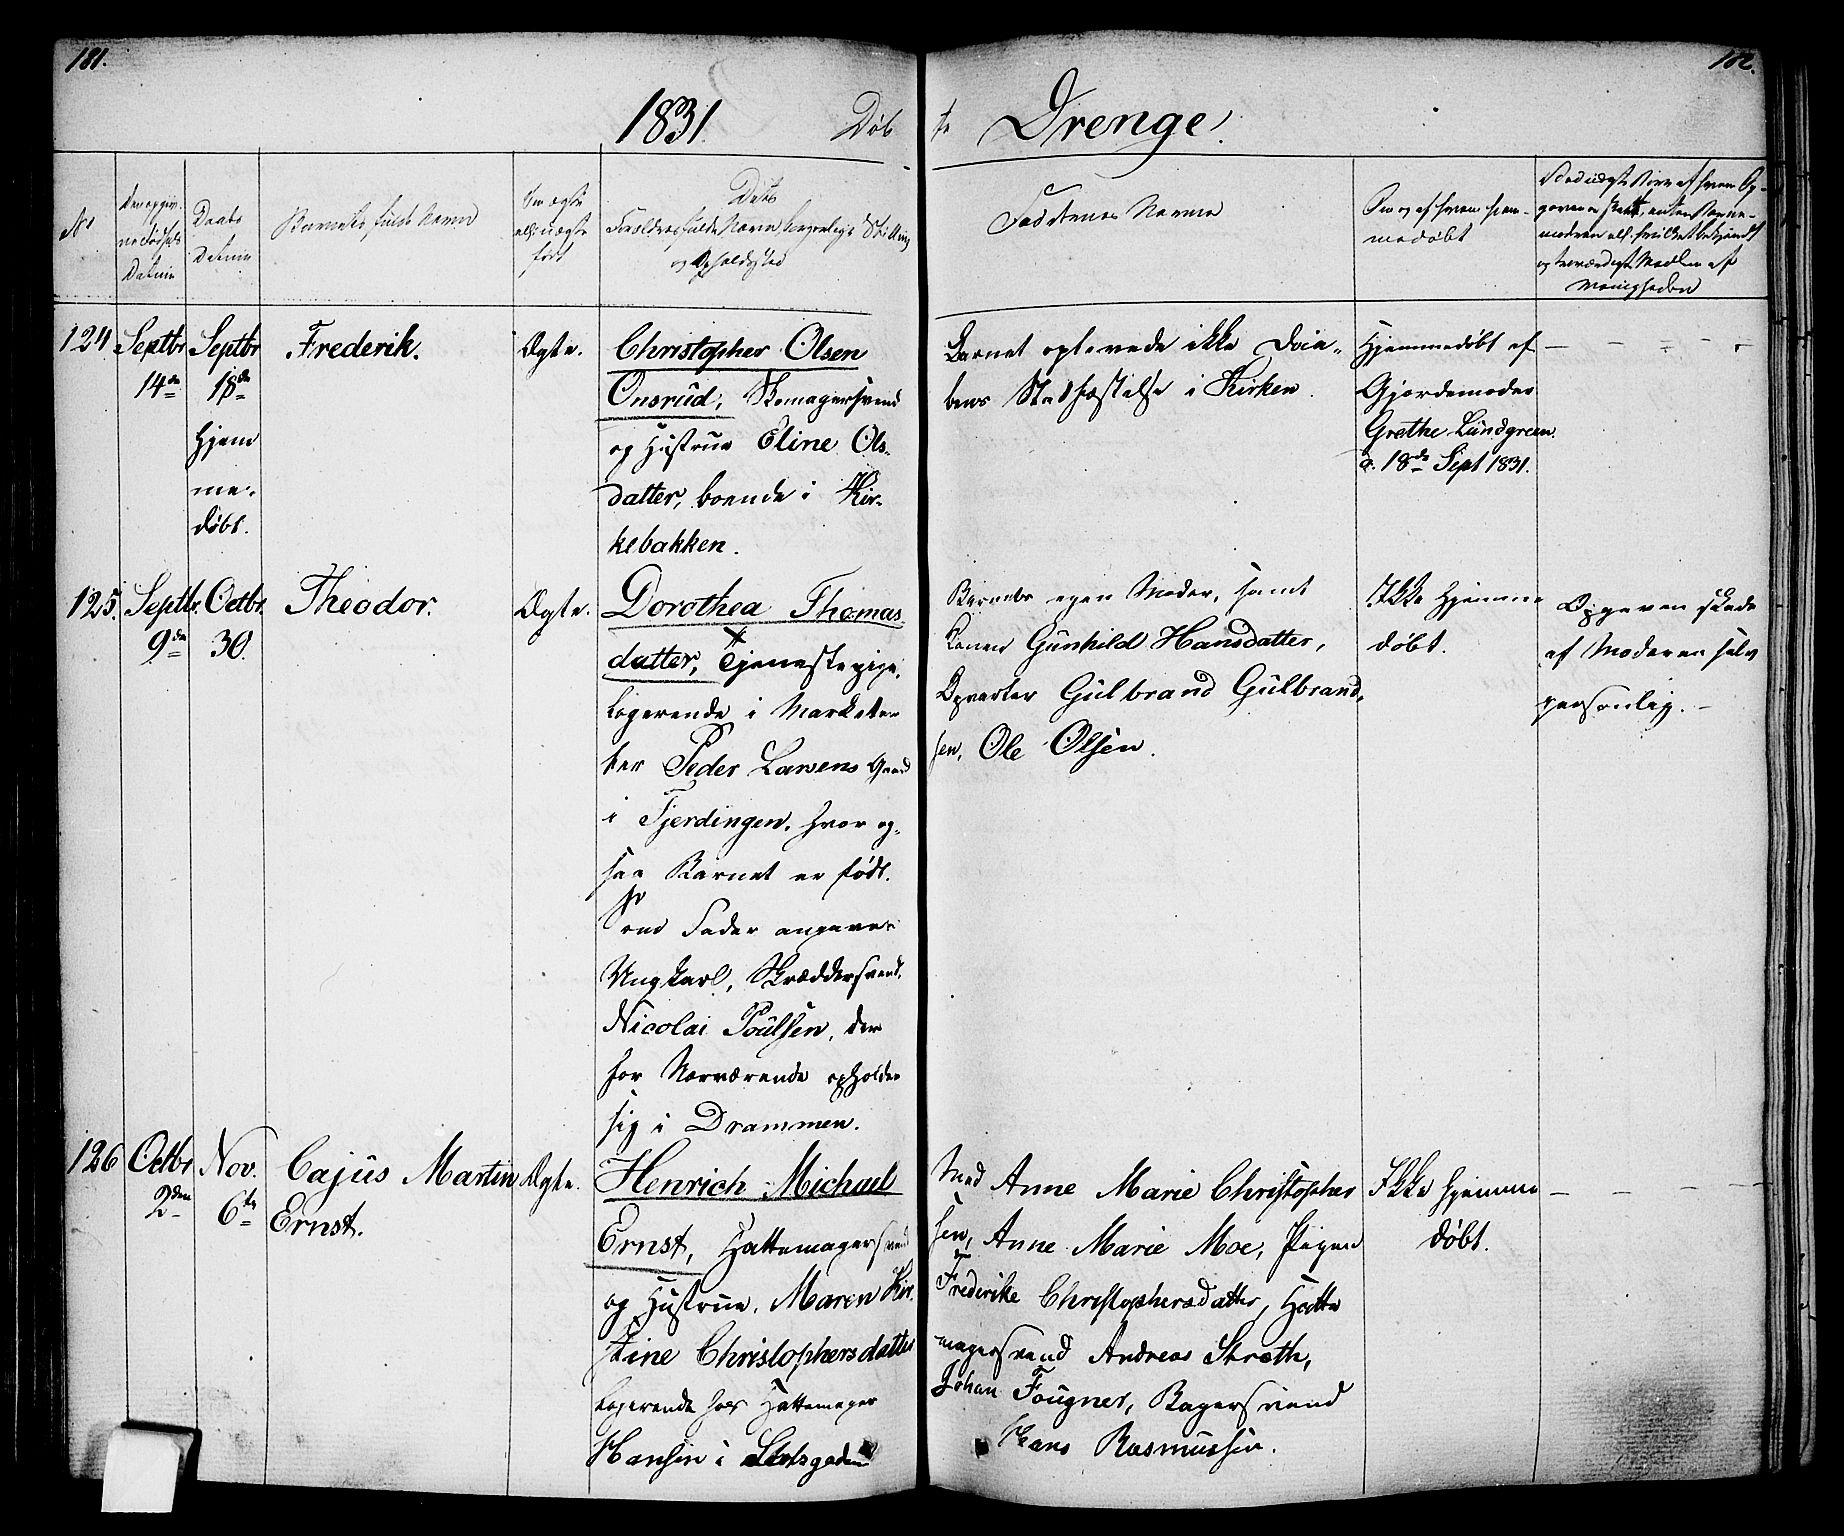 181.
182.
1831. Døb te Drenge.
No
Den opgiv-
ne Fødsels
Datum
Daabs
Datum
Barnets fulde Navn
Om ægte
ell: uægte
født
Dets
Forældres fulde Navn borgerlige Stilling
og Opholdssted
Faddernes Navne
Om og af hvem hjem-
medøbt
Ved uægte Børn af hvem Op-
gaven er skeet, enten Barne-
moderen ell. hvilket bekjendt
og troværdigt Medlem af
Menigheden
124
Septbr
14de
Septbr
18de
hjem
me-
døbt.
Frederik.
Ægte.
Christopher Olsen
Onsrud, Skomagersvend
og Hustrue Eline Ols-
datter, boende i Kir-
kebakken.
Barnet oplevede ikke Daa-
bens Stadfæstelse i Kirken.
Hjemmedøbt af
Gjordemoder
Grethe Lundgreen
d. 18de Sept 1831.
125.
Septbr.
9de
Octbr.
30.
Theodor.
Ægte.
Dorothea Thomas
datter, Tjenestepige,
logerende i Marketen-
ter Peder Larsens Gaard
i Fjerdingen, hvor og-
saa Barnet er født.
Som Fader angaves
Ungkarl, Skræddersvend,
Nicolai Poulsen, der
for Nærværende opholder
sig i Drammen.
Barnets egen Moder, samt
Konen Gunhild Hansdatter,
Opvarter Gulbrand Gulbrand-
sen, Ole Olsen.
Ikke hjemme
døbt.
Opgaven skede
af Moderen selv
personlig.
126
Octbr
2den
Nov.
6te
Cajus Martin
Ernst.
Ægte.
Henrich Michael
Ernst, Hattemagersvend
og Hustrue, Maren Kir-
stine Christophersdatter
logerende hos Hattemager
Hansen i Slotsgaden
Mad Anne Marie Christopher
sen, Anne Marie Moe, Pigen
Frederike Christophersdatter, Hatte
magersvend Andreas Strøth,
Johan Fougner, Bagersvend
Hans Rasmussen.
Ikke hjemme
døbt.